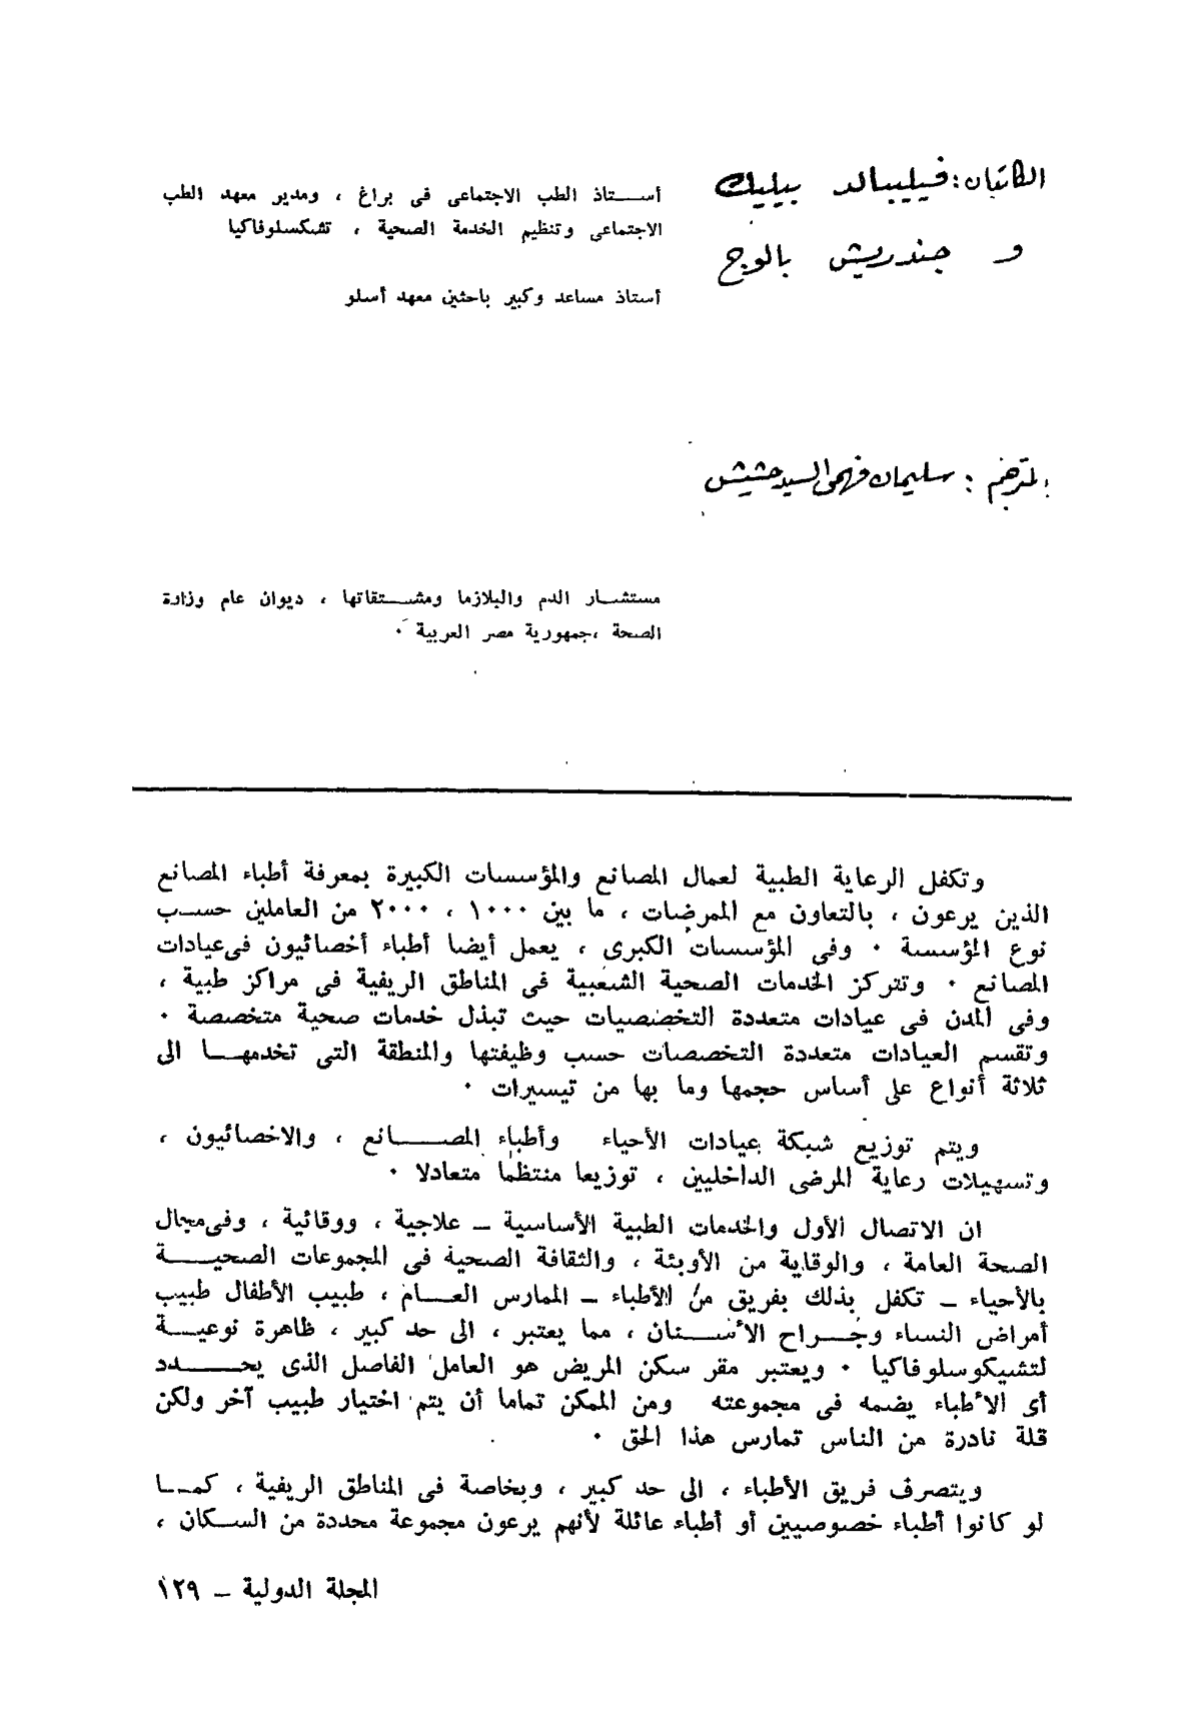 الكاتبان: فيليبالد بيليك
أستاذ الطب الاجتماعى فى براغ ، ومدير معهد الطب
الاجتماعى وتنظيم الخدمة الصحية ، تشكسلوفاكيا
و جندريش بالوج
أستاذ مساعد وكبير باحثين معهد أسلو
المترجم : سليمان فهمى السيد حشيش
مستشار الدم والبلازما ومشتقاتها ، ديوان عام وزارة
الصحة ،جمهورية مصر العربية ٠
وتكفل الرعاية الطبية لعمال المصانع والمؤسسات الكبيرة بمعرفة أطباء المصانع
الذين يرعون ، بالتعاون مع الممرضات ، ما بين ١٠٠٠ ، ٢٠٠٠ من العاملين حسب
نوع المؤسسة ٠ وفى المؤسسات الكبرى ، يعمل أيضا أطباء أخصائيون فى عيادات
المصانع ٠ وتتركز الخدمات الصحية الشعبية فى المناطق الريفية فى مراكز طبية ،
وفى المدن فى عيادات متعددة التخصصيات حيث تبذل خدمات صحية متخصصة ٠
وتقسم العيادات متعددة التخصصات حسب وظيفتها والمنطقة التى تخدمها الى
ثلاثة أنواع على أساس حجمها وما بها من تيسيرات ٠
ويتم توزيع شبكة عيادات الأحياء وأطباء المصانع ، والاخصائيون ،
وتسهيلات رعاية المرضى الداخليين ، توزيعا منتظما متعادلا ٠
ان الاتصال الأول والخدمات الطبية الأساسية – علاجية ، ووقائية ، وفى مجال
الصحة العامة ، والوقاية من الأوبئة ، والثقافة الصحية فى المجموعات الصحية
بالأحياء – تكفل بذلك بفريق من الأطباء – الممارس العام ، طبيب الأطفال طبيب
أمراض النساء وجراح الأسنان ، مما يعتبر ، الى حد كبير ، ظاهرة نوعية
لتشيكوسلوفاكيا ٠ ويعتبر مقر سكن المريض هو العامل الفاصل الذى يحدد
أى الأطباء يضمه فى مجموعته ومن الممكن تماما أن يتم اختيار طبيب آخر ولكن
قلة نادرة من الناس تمارس هذا الحق ٠
ويتصرف فريق الأطباء ، الى حد كبير ، وبخاصة فى المناطق الريفية ، كما
لو كانوا أطباء خصوصيين أو أطباء عائلة لأنهم يرعون مجموعة محددة من السكان ،
المجلة الدولية – ١٢٩